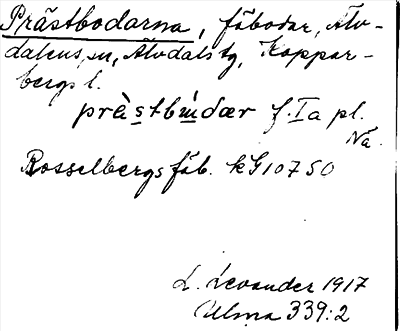 Prästbodarna, fäbodar, Älv-
dalens sn, Älvdals tg, Koppar-
bergs l.
præ̀stbu̇dær f. Ia pl.
Na.
Rosselbergs fäb. kG1075O
L. Levander 1917
Ulma 339:2